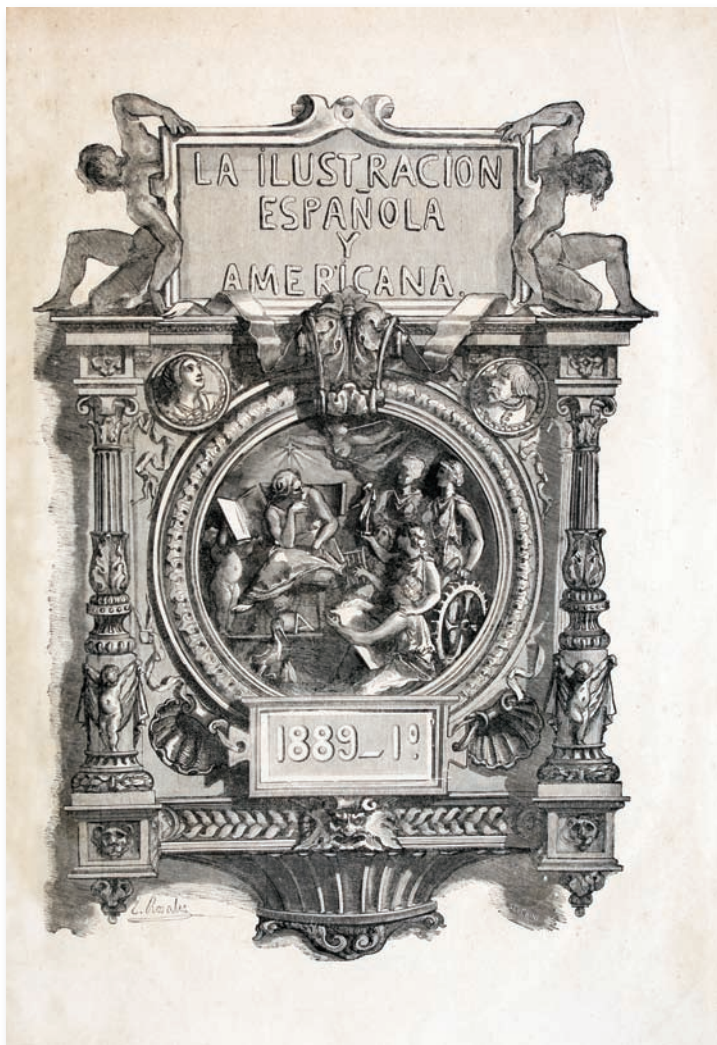 LA ILUSTRACION
ESPAÑOLA
Y
AMERICANA.
1889_1º
E. Rosales